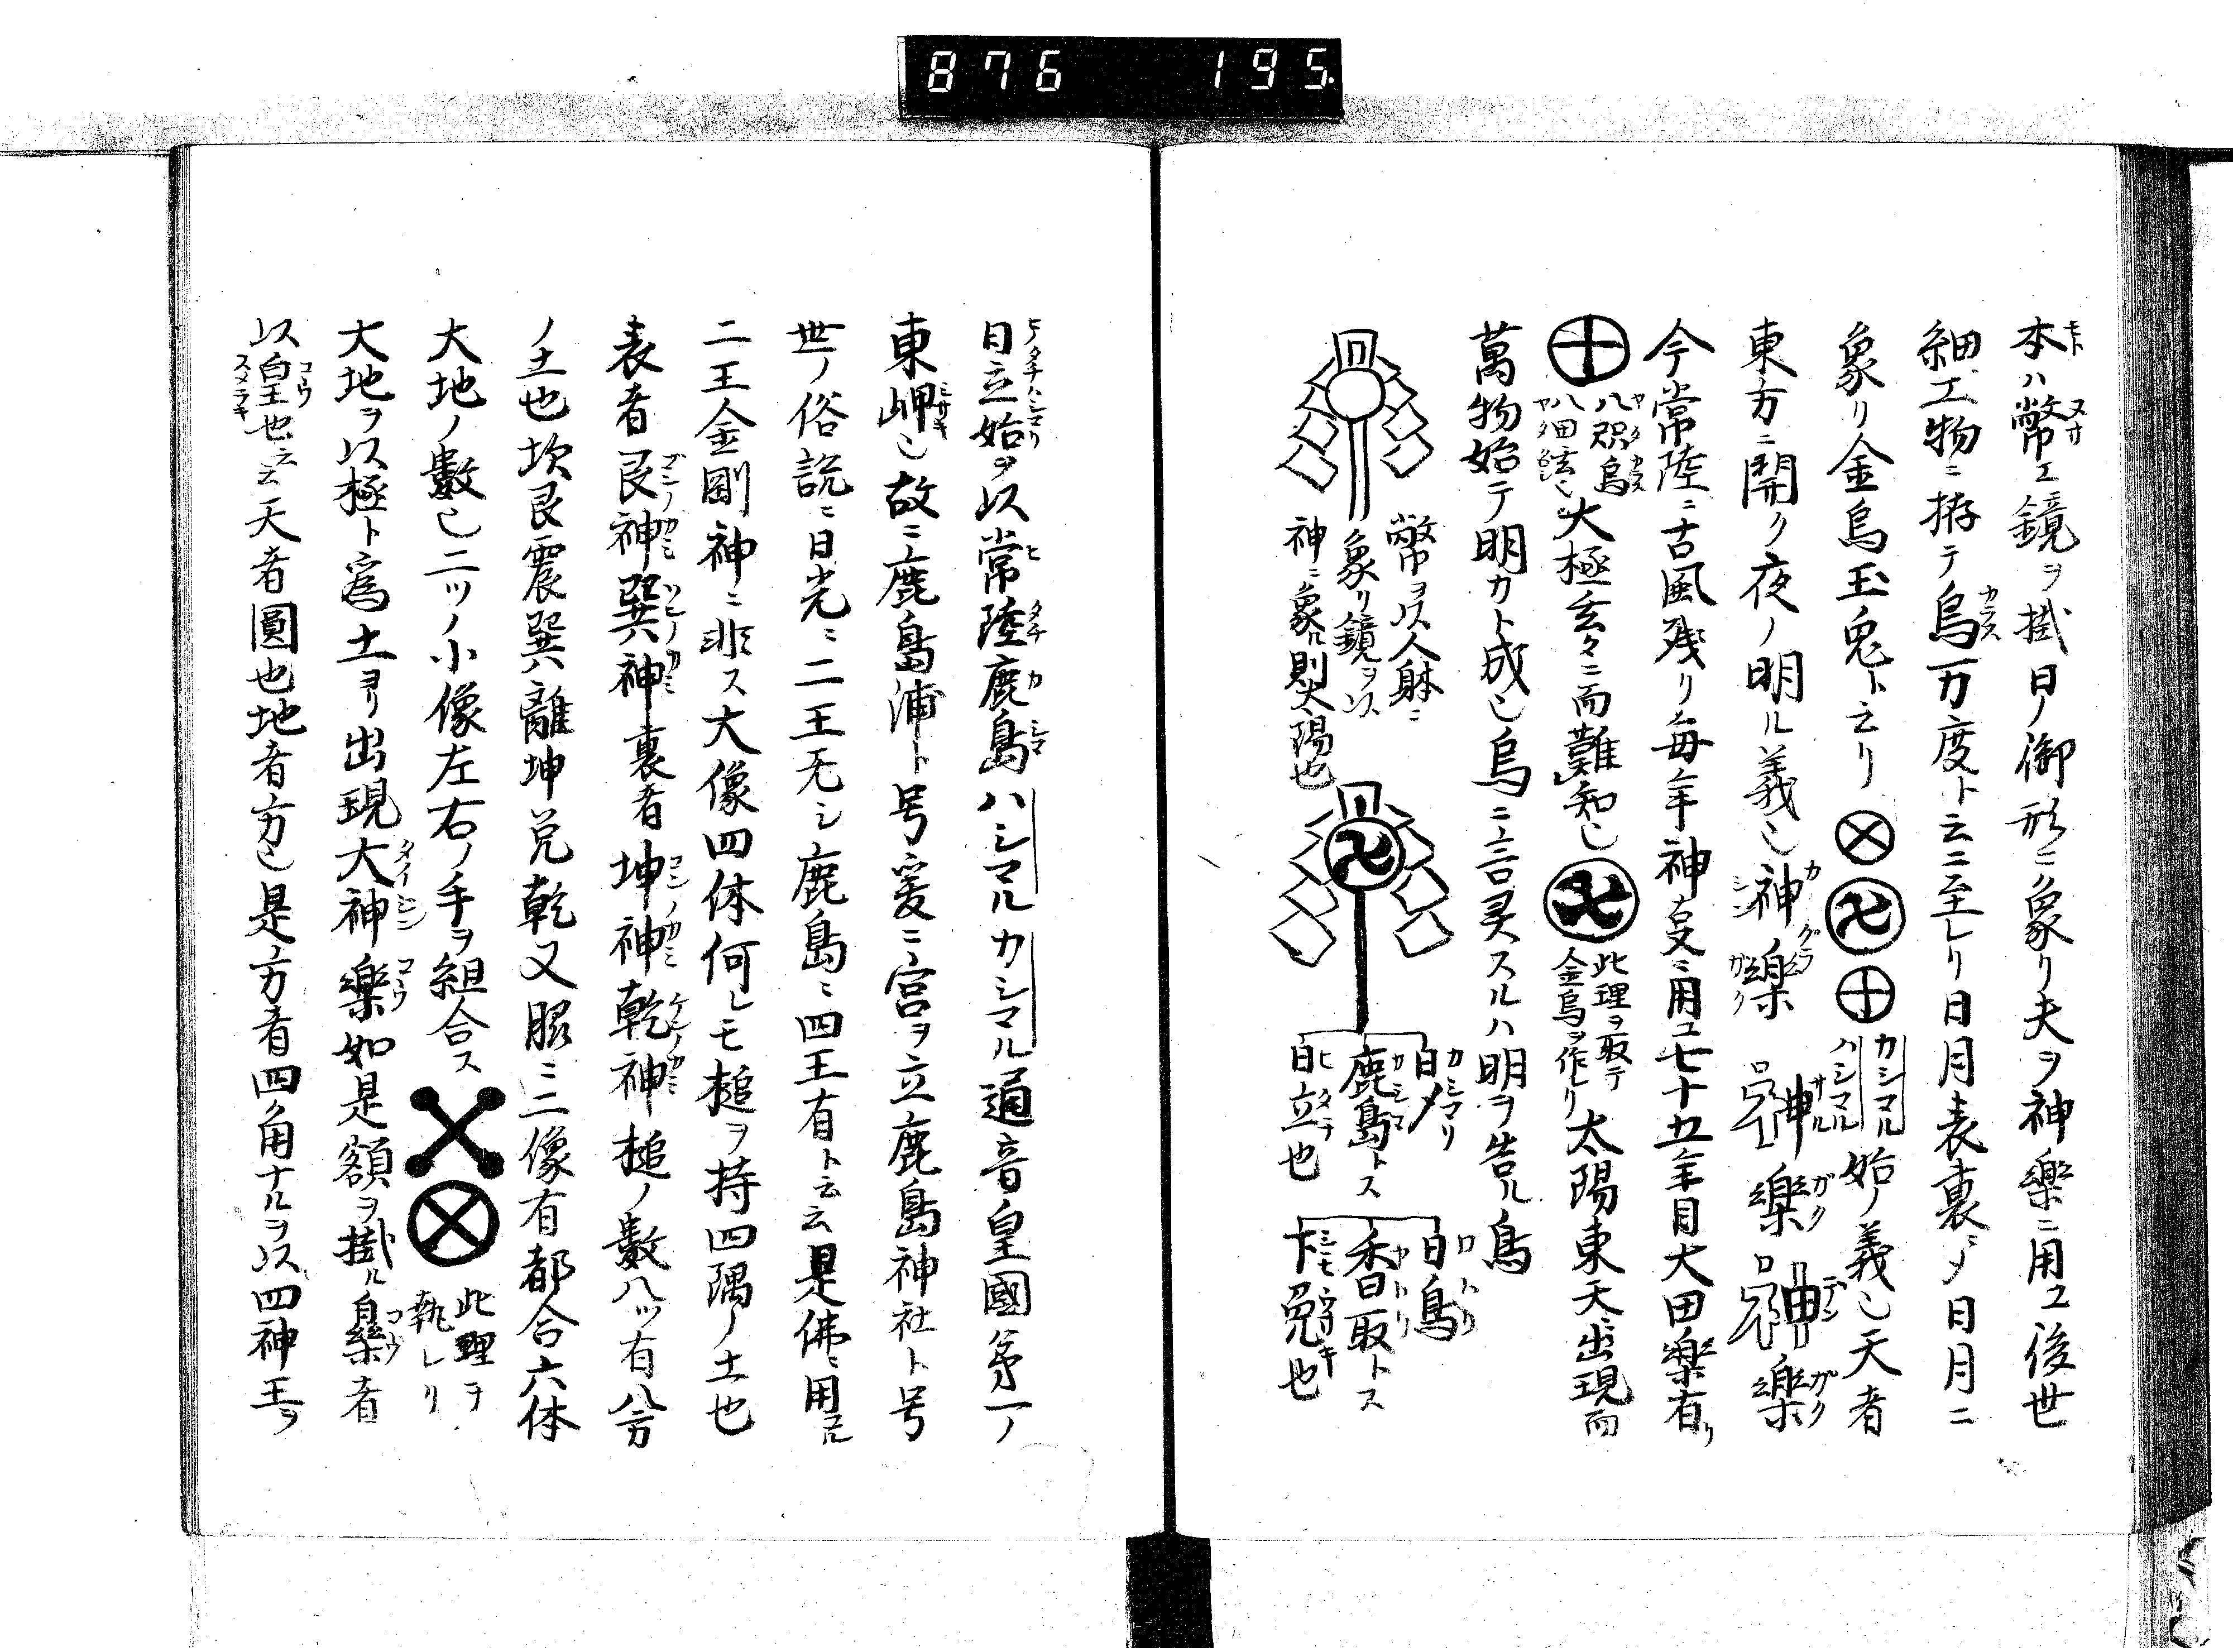 876 195
本ハ幣エ鏡ヲ掛日ノ御形ニ象リ夫ヲ神樂ニ用ユ後世
細工物ニ拵テ烏万度ト云ニ至レリ日月表裏ニメ日月ニ
象リ金烏玉兎ト云リ カシマル ハシマル 始ノ義也天者
東方ニ開ク夜ノ明ル義也神樂 神樂 神樂
今常陸ニ古風残リ毎年神叓ニ用ユ七十五年目大田樂有リ
八咫烏 大極玄々ニ而難知也 此理ヲ取テ金烏ヲ作レリ 太陽東天ニ出現而
萬物始テ明カト成也烏ニ言灵スルハ明ヲ告ル鳥
幣ヲ以人躰ニ
象リ鏡ヲ以
神ニ象ル則太陽也
鹿島トス
日立也
白鳥
香取トス
日立始ヲ以常陸鹿島ハシマルカシマル通音皇國第一ノ
東岬也故ニ鹿島浦ト号爰ニ宮ヲ立鹿島神社ト号
世ノ俗説ニ日光ニ二王无シ鹿島ニ四王有ト云云是佛ニ用ル
二王金剛神ニ非ス大像四体何レモ槌ヲ持四隅ノ土也
表者艮神巽神裏者坤神乾神槌ノ數八ツ有八方
ノ土也坎艮震巽離坤兌乾又脇ニ二像有都合六体
大地ノ數也二ツノ小像左右ノ手ヲ組合ス 此理ヲ執レリ
大地ヲ以極ト為土ヨリ出現大神樂如是額ヲ掛ル 者
以皇也ト云天者圓也地者方也是方者四角ナルヲ以四神王ヲ